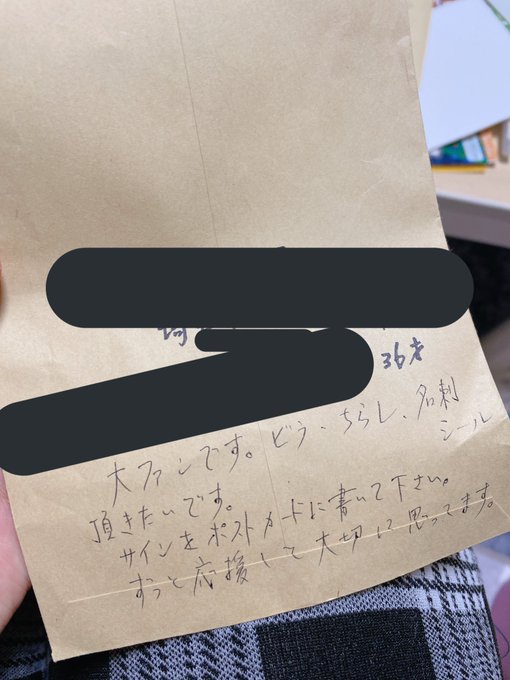 36才
大ファンです。ビラ、ちらし、名刺
シール
頂きたいです。
サインをポストカードに書いて下さい。
ずっと応援して大切に思ってます。